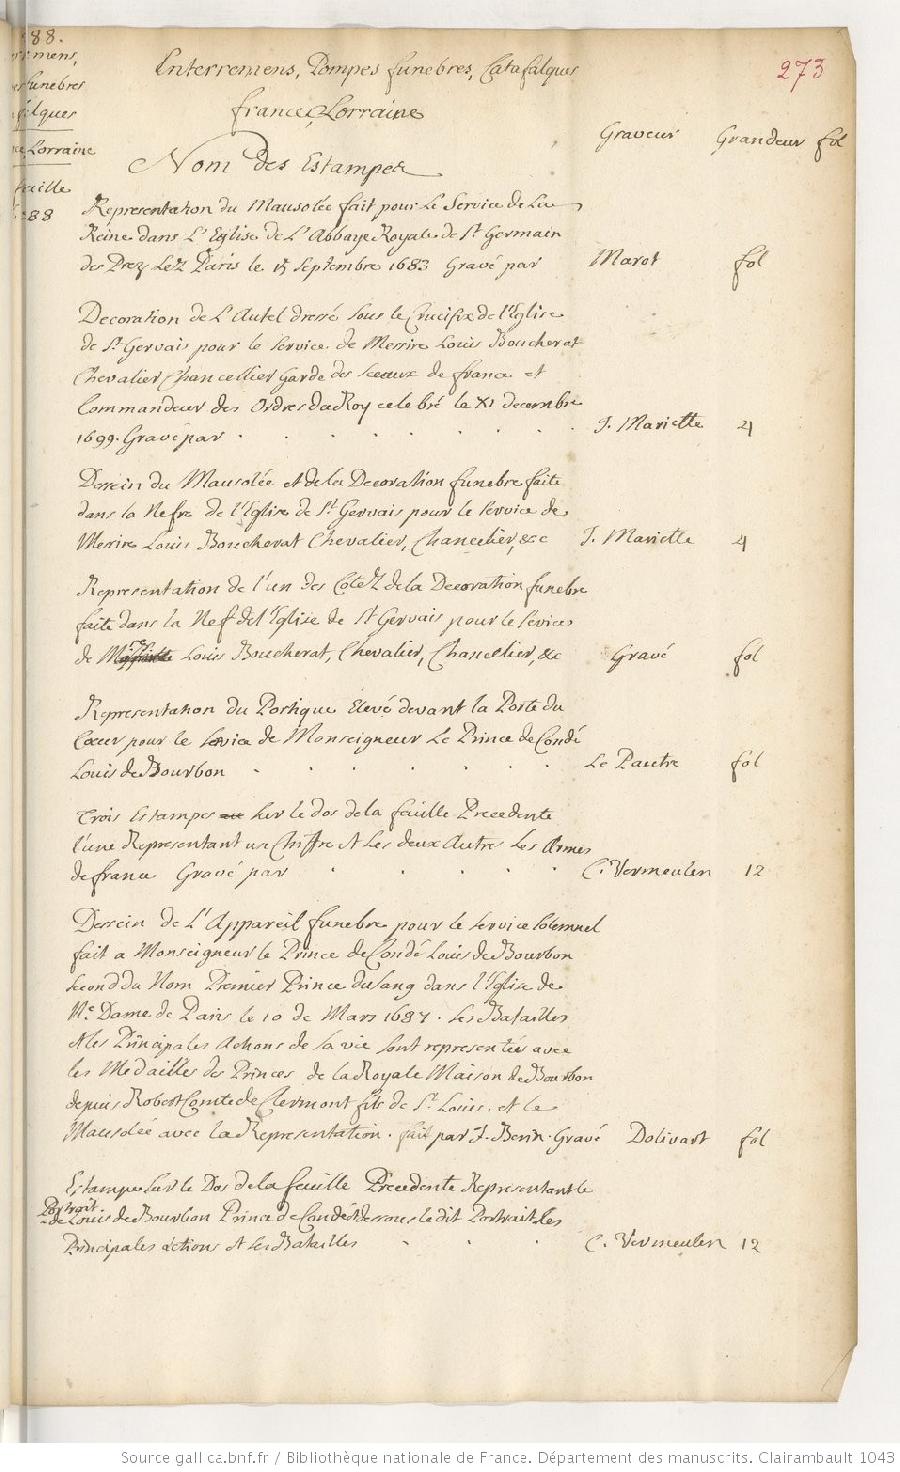 88.
273
Enterremens, Pompes funebres, Catafalques
france, Lorraine
Graveur Grandeur fol
Nom des Estampes
funebres
Lorraine
88
Representation du Mausolée fait pour Le Service de La
Reine dans L'Eglise de L'Abbaye Royale de St. Germain
des Prez Lez Paris le 15 Septembre 1683 Gravé par Marot fol
Decoration de L'Autel dressé sous le Crucifix de l'Eglise
de St. Gervais pour le service de Messire Louis Boucherat
Chevalier Chancellier Garde des Sceaux de france et
Commandeur des Ordres du Roy celebré le XI decembre
1699. Gravé par J. Mariette 4
Dessein du Mausolée et de la Decoration funebre faite
dans la Nefve de l'Eglise de St. Gervais pour le service de
Messire Louis Boucherat Chevalier, Chancelier, &c J. Mariette 4
Representation de l'un des Cotez de la Decoration funebre
faite dans la Nef de l'Eglise de St Gervais pour le service
de Louis Boucherat, Chevalier, Chancellier, &c Gravé fol
Representation du Portique Elevé devant la Porte du
Cœur pour le service de Monseigneur Le Prince de Condé
Louis de Bourbon Le Pautre fol
Trois Estampes sur le dos de la feuille Precedente
l'une Representant un Chiffre et Les deux Autres Les Armes
de france Gravé par C. Vermeulen 12
Dessein de L'Appareil funebre pour le service solemnel
fait a Monseigneur le Prince de Condé Louis de Bourbon
second du Nom Premier Prince du sang dans l'Eglise de
Ne. Dame de Paris le 10 de Mars 1687. Les Batailles
et les Principales Actions de sa vie sont representées avec
les Medailles des Princes de la Royale Maison de Bourbon
depuis Robert Comte de Clermont fils de St. Louis. et le
Mausolée avec la Representation. fait par J. Berin. Gravé Dolivart fol
Estampe sur le Dos de la feuille Precedente Representant le
Portrait
de Louis de Bourbon Prince de Condé et dit Portrait les
Principales actions et les Batailles C. Vermeulen 12
Source gallica.bnf.fr / Bibliothèque nationale de France. Département des manuscrits. Clairambault 1043